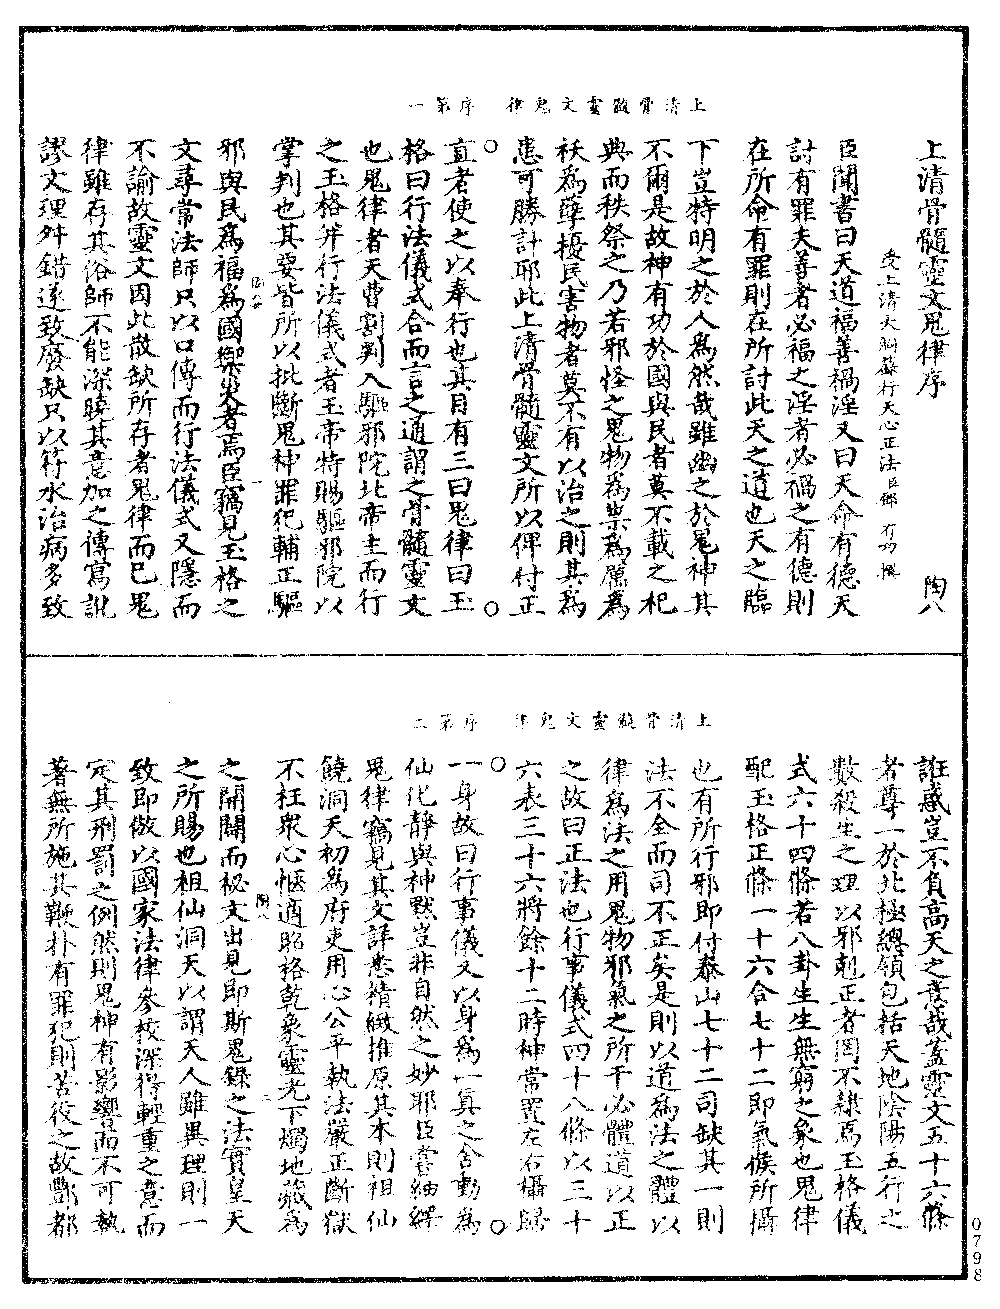 上清骨髓靈文鬼律　序第一
上清骨髓靈文鬼律序　陶八
受上清大洞籙行天心正法臣鄧有功撰
臣聞書曰天道福善禍淫又曰天命有德天
討有罪夫善者必福之淫者必禍之有德則
在所命有罪則在所討此天之道也天之臨
下豈特明之於人為然哉雖幽之於鬼神其
不爾是故神有功於國與民者莫不載之祀
典而秩祭之乃若邪怪之鬼物為祟為厲為
袄為孽擾民害物者莫不有以治之則其為
患可勝計耶此上清骨髓靈文所以俾付正
直者使之以奉行也其目有三曰鬼律曰玉
格曰行法儀式合而言之通謂之骨髓靈文
也鬼律者天曹割判入驅邪院北帝主而行
之玉格并行法儀式者玉帝特賜驅邪院以
掌判也其要皆所以批斷鬼神罪犯輔正驅
邪與民為福為國禦災者焉臣竊見玉格之
文尋常法師只以口傳而行法儀式又隱而
不諭故靈文因此散缺所存者鬼律而已鬼
律雖存其俗師不能深曉其意加之傳寫訛
謬文理舛錯遂致廢缺只以符水治病多致
上清骨髓靈文鬼律　序第二
誑惑豈不負高天之意哉蓋靈文五十六條
者尊一於北極總領包括天地陰陽五行之
數殺生之理以邪剋正者罔不隸焉玉格儀
式六十四條若八卦生生無窮之象也鬼律
配玉格正條一十六合七十二即氣候所攝
也有所行邪即付泰山七十二司缺其一則
法不全而司不正矣是則以道為法之體以
律為法之用鬼物邪氣之所干必體道以正
之故曰正法也行事儀式四十八條以三十
六表三十六將餘十二時神常置左右攝歸
一身故曰行事儀又以身為一真之舍動為
仙化靜與神默豈非自然之妙耶臣嘗紬繹
鬼律竊見其文詳悉精緻推原其本則祖仙
饒洞天初為府吏用心公平執法嚴正斷獄
不枉眾心愜適昭格乾象靈光下燭地藏為
之開闢而祕文出見即斯鬼錄之法實皇天
之所賜也祖仙洞天以謂天人雖異理則一
致即倣以國家法律參校深得輕重之意而
定其刑罰之例然則鬼神有影響而不可執
著無所施其鞭扑有罪犯則苦役之故酆都
0798